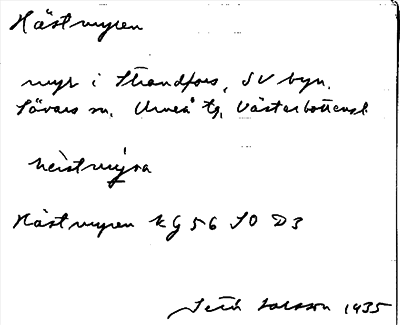 Hästmyren
myr i Strandfors, SV byn.
Sävars sn. Umeå tg. Västerbottens l.
hèistmýra
Hästmyren kg 56 SO D3
Seth Larsson 1935